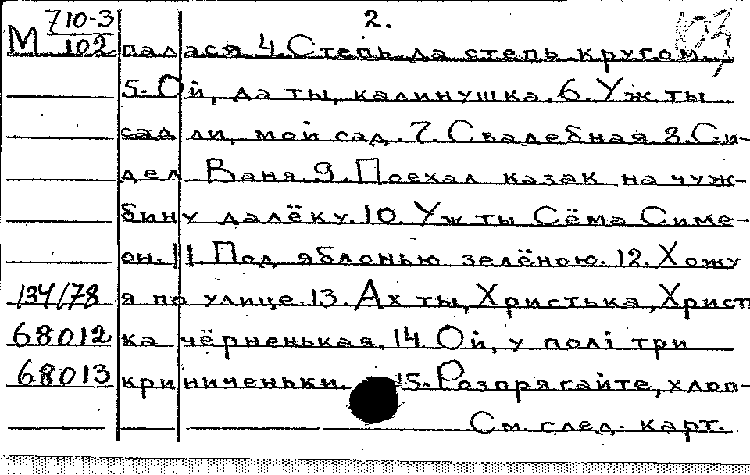 710-3 2. 103
М 102 палася 4. Степь да степь кругом
5. Ой, да ты, калинушка. 6. Уж ты
сад ли, мой сад. 7. Свадебная 8. Си-
дел Ваня. 9. Поехал казак на чуж-
бину далёку. 10. Уж ты Сёма Симе-
он. 11. Под яблонью зелёною. 12. Хожу
134/78 я по улице. 13. Ах ты, Христька, Христ
68012 ка чёрненькая. 14. Ой, у полі три
68013 криниченьки. 15. Розпрягайте, хлоп-
См. след. карт.